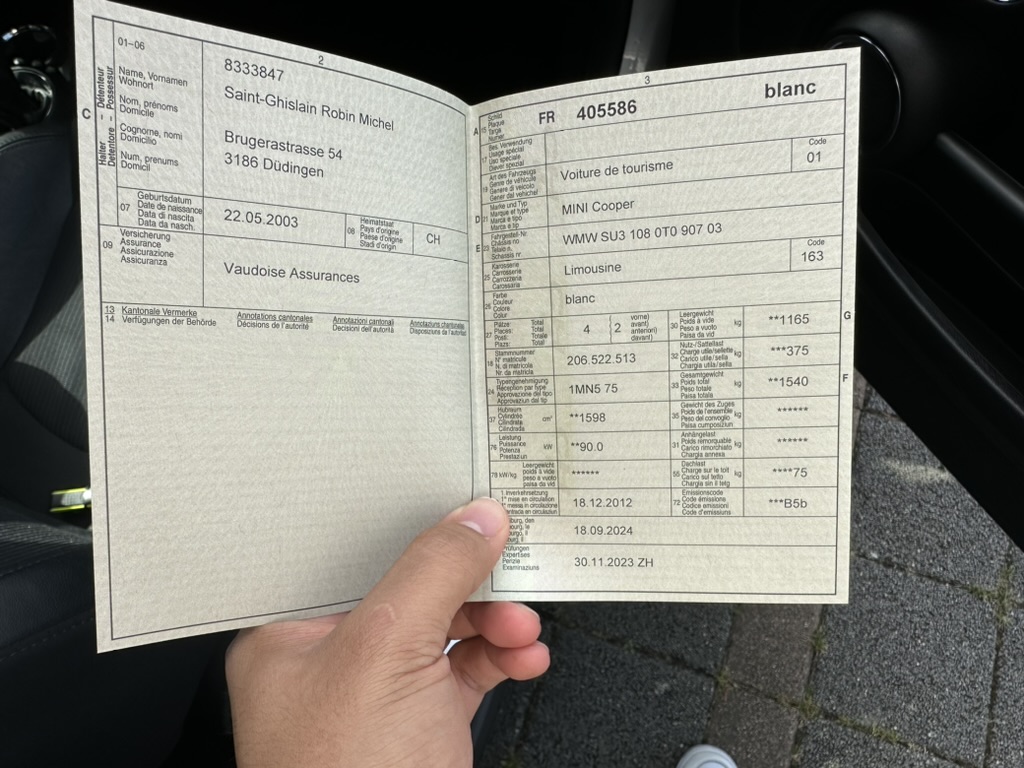 2
C
Halter – Détenteur
Detentore – Possessur
01–06
Name, Vornamen
Wohnort
Nom, prénoms
Domicile
Cognome, nomi
Domicilio
Num, prenums
Domicil
8333847
Saint-Ghislain Robin Michel
Brugerastrasse 54
3186 Düdingen
07
Geburtsdatum
Date de naissance
Data di nascita
Data da nasch.
22.05.2003
08
Heimatstaat
Pays d'origine
Paese d'origine
Stadi d'origin
CH
09
Versicherung
Assurance
Assicurazione
Assicuranza
Vaudoise Assurances
13 Kantonale Vermerke
14 Verfügungen der Behörde
Annotations cantonales
Décisions de l'autorité
Annotazioni cantonali
Decisioni dell'autorità
Annotaziuns chantunalas
Disposiziuns da l'autoritad
3
A
15
Schild
Plaque
Targa
Numer
FR 405586
blanc
17
Bes. Verwendung
Usage spécial
Uso speciale
Diever spezial
19
Art des Fahrzeugs
Genre de véhicule
Genere di veicolo
Gener dal vehichel
Voiture de tourisme
Code
01
D
21
Marke und Typ
Marque et type
Marca e tipo
Marca e tip
MINI Cooper
E
23
Fahrgestell-Nr.
Châssis no
Telaio n.
Schassis nr.
WMW SU3 108 0T0 907 03
25
Karosserie
Carrosserie
Carrozzeria
Carossaria
Limousine
Code
163
26
Farbe
Couleur
Colore
Colur
blanc
27
Plätze: Total
Places: Total
Posti: Totale
Plazs: Total
4
2
vorne)
avant)
anteriori)
davant)
30
Leergewicht
Poids à vide
Peso a vuoto
Paisa da vid
kg
**1165
G
18
Stammnummer
N° matricule
N. di matricola
Nr. da matricla
206.522.513
32
Nutz-/Sattellast
Charge utile/sellette
Carico utile/sella
Chargia utila/sella
kg
***375
24
Typengenehmigung
Réception par type
Approvazione del tipo
Approvaziun dal tip
1MN5 75
33
Gesamtgewicht
Poids total
Peso totale
Paisa totala
kg
**1540
F
37
Hubraum
Cylindrée
Cilindrata
Cilindrada
cm³
**1598
35
Gewicht des Zuges
Poids de l'ensemble
Peso del convoglio
Paisa cumposiziun
kg
******
76
Leistung
Puissance
Potenza
Prestaziun
kW
**90.0
31
Anhängelast
Poids remorquable
Carico rimorchiato
Chargia annexa
kg
******
78 kW/kg
Leergewicht
poids à vide
peso a vuoto
paisa da vid
******
55
Dachlast
Charge sur le toit
Carico sul tetto
Chargia sin il tetg
kg
****75
1. Inverkehrsetzung
1re mise en circulation
messa in circolazione
entrada en circulaziun
18.12.2012
72
Emissionscode
Code émissions
Codice emissioni
Code d'emissiuns
***B5b
18.09.2024
Prüfungen
Expertises
Perizie
Examinaziuns
30.11.2023 ZH